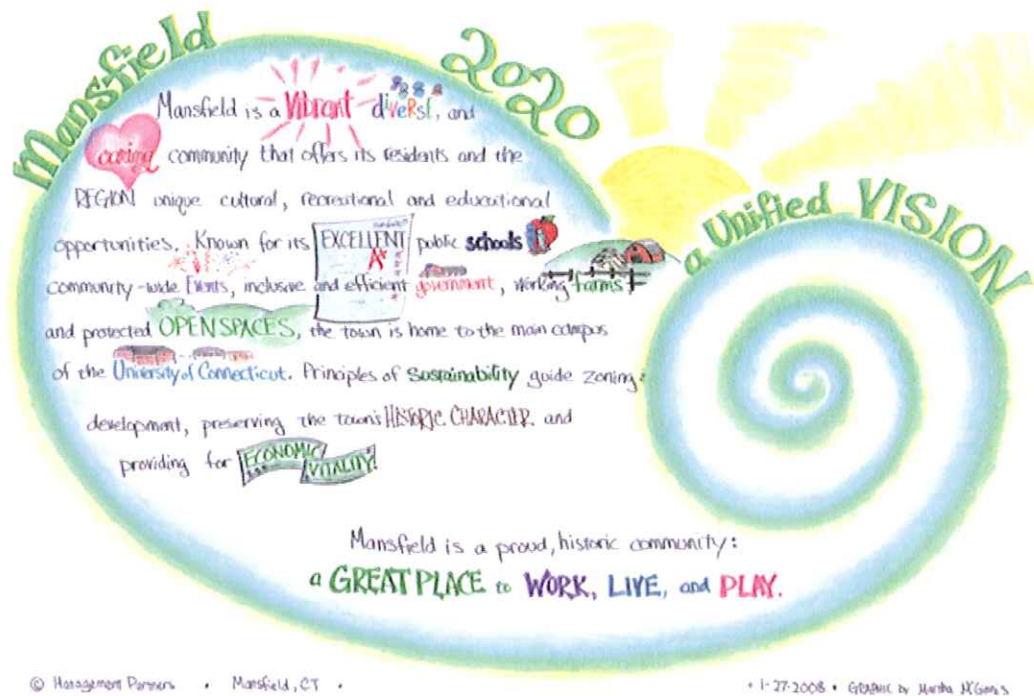 Mansfield 2020
a Unified VISION
Mansfield is a Vibrant diverse, and
caring community that offers its residents and the
REGION unique cultural, recreational and educational
opportunities. Known for its EXCELLENT A+ public schools
community-wide Events, inclusive and efficient government, working farms,
and protected OPEN SPACES, the town is home to the main campus
of the University of Connecticut. Principles of Sustainability guide zoning &
development, preserving the town's HISTORIC CHARACTER and
providing for ECONOMIC VITALITY!
Mansfield is a proud, historic community:
a GREAT PLACE to WORK, LIVE, and PLAY.
© Management Partners • Mansfield, CT •
• 1-27-2008 • GRAPHIC by Martha McGinnis